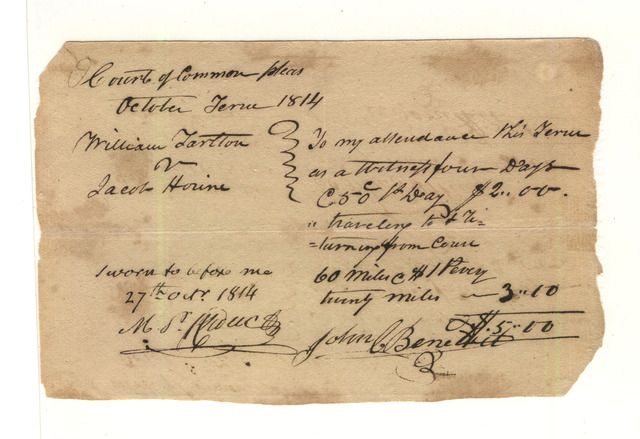 Court of Common pleas
October Term 1814
William Tarlton
v
Jacob Horine
To my attendance this Term
as a Witness four Days
@ 50c pr Day $2..00.
" traveling to & re=
=turning from Court
60 Miles @ $1 Pevery
twenty miles — 3..00
$5..00
Sworn to before me
27th Octr. 1814
John Benedict